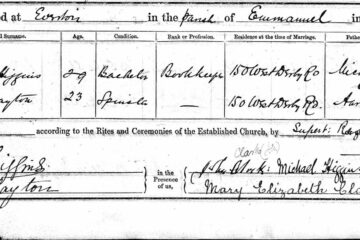 d at Everton in the Parish of Emmanuel
Surname. Age. Condition. Rank or Profession. Residence at the time of Marriage. Fathe
Higgins 29 Bachelor Bookkeeper 150 West Derby Rd Mic
ayton 23 Spinster — 150 West Derby Rd. Aar
according to the Rites and Ceremonies of the Established Church, by
iggins in the Presence of us, John Clark: Michael Higgins
ayton Mary Elizabeth Cla